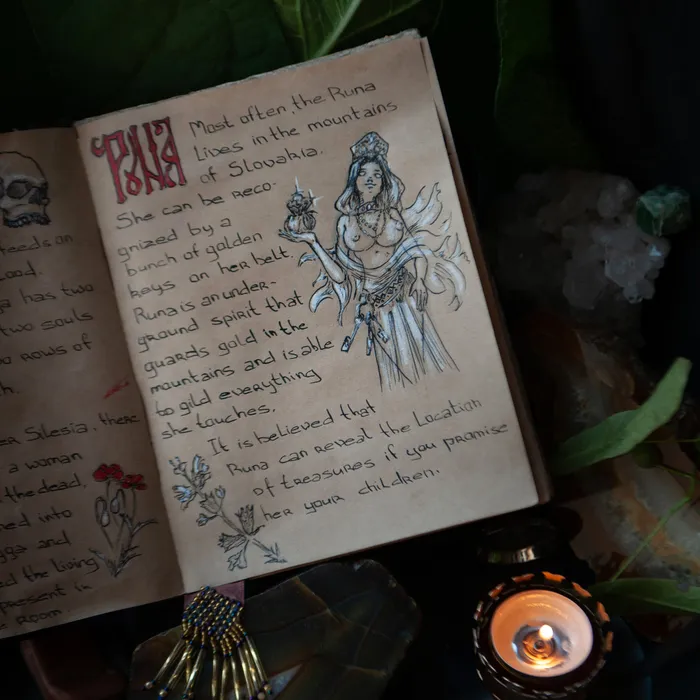 feeds on
has two
two souls
rows of
Silesia, there
a woman
the dead.
into
and
the living
present in
room.
РУНА
Most often, the Runa
Lives in the mountains
of Slovakia.
She can be reco-
gnized by a
bunch of golden
keys on her belt.
Runa is an under-
ground spirit that
guards gold in the
mountains and is able
to gild everything
she touches.
It is believed that
Runa can reveal the Location
of treasures if you promise
her your children.